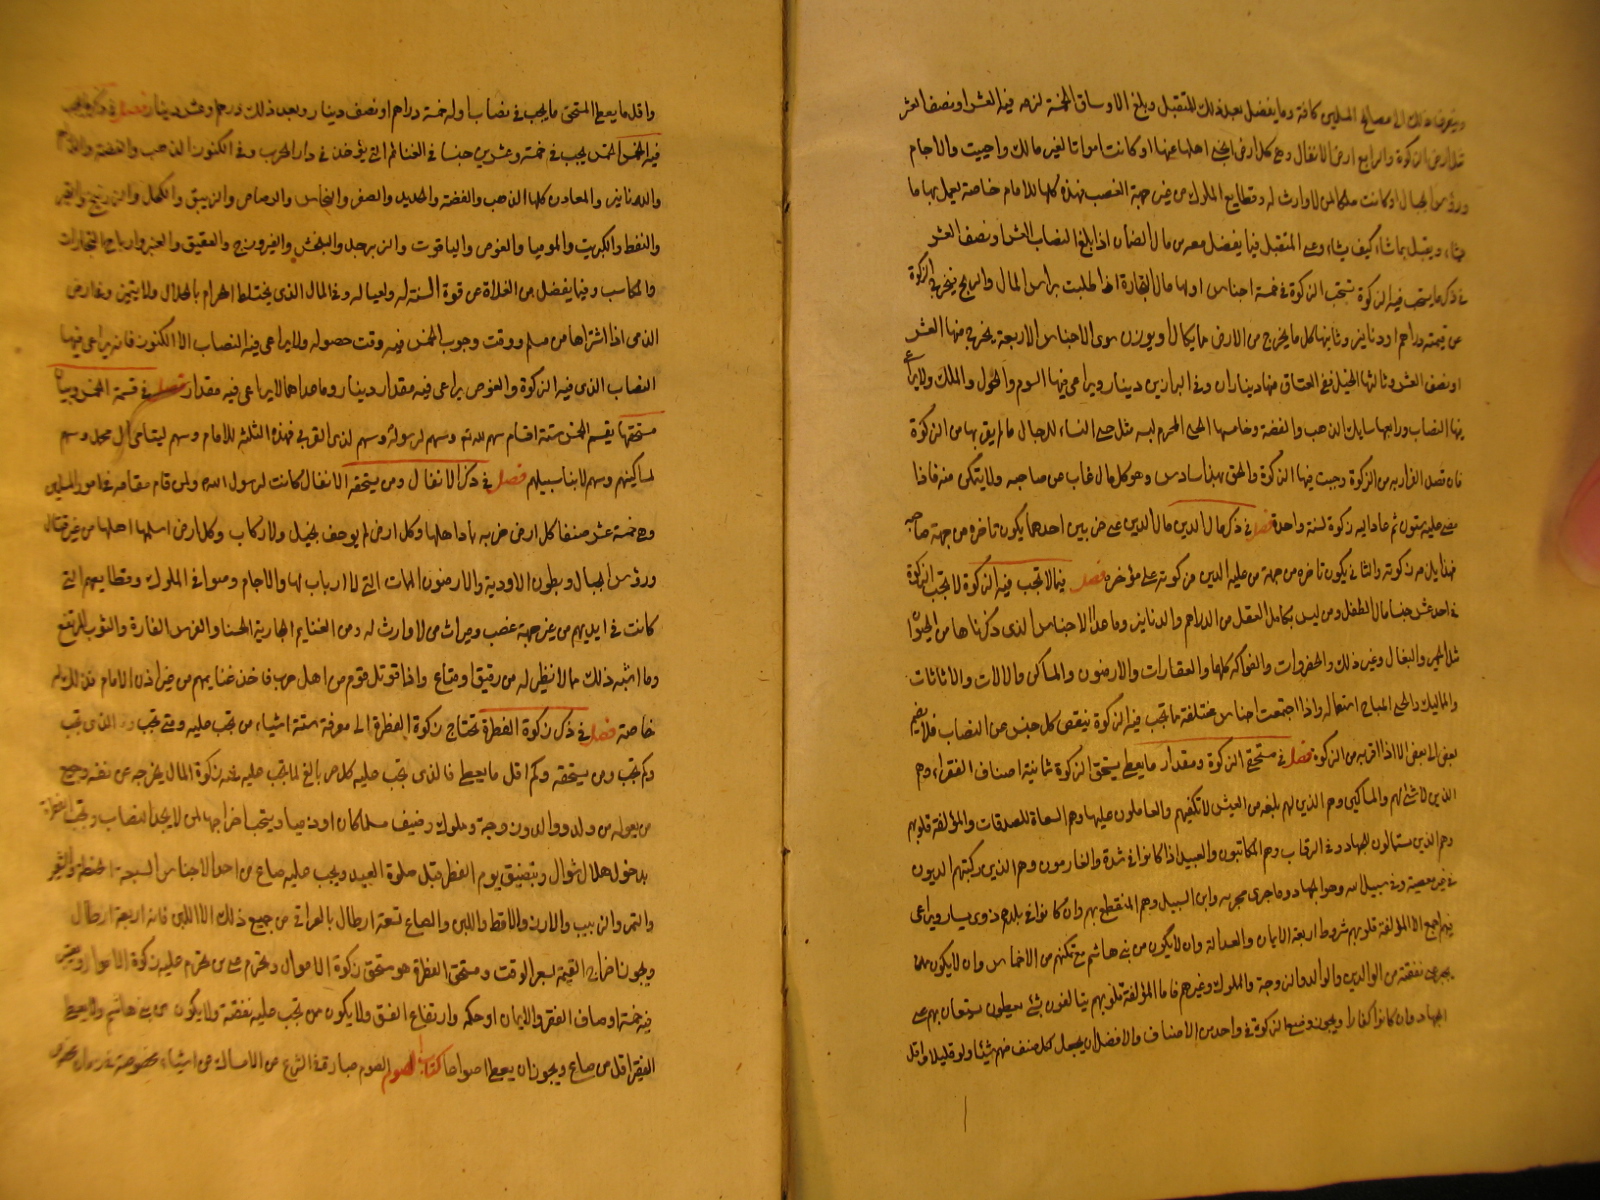 ويصرف ذلك الى مصالح المسلمين كافة وما يفضل بعد ذلك للمتقبل وبلغ الاوساق الخمسة لزمه فيه العشر او نصف العشر
مثل ارض الزكوة والرابع ارض الانفال وهي كل ارض انجلى اهلها عنها او كانت مواتا لغير مالك واحييت والاجام
ورؤس الجبال او كانت ملكا لمن لا وارث له وقطايع الملوك من غير جهة الغصب فهذه كلها للامام خاصة يعمل بها ما
شاء ويقبل بما شاء كيف شاء وعلى المتقبل فيما يفضل معه من مال الضمان اذا بلغ النصاب العشر او نصف العشر
في ذكر ما يستحب فيه الزكوة تستحب الزكوة في خمسة اجناس اولها مال التجارة اذا طلبت براس المال والربح يخرج الزكوة
عن قيمته دراهم او دنانير وثانيها كل ما يخرج من الارض مما يكال او يوزن سوى الاجناس الاربعة يخرج منها العشر
او نصف العشر وثالثها الخيل ففي العتاق منها ديناران وفي البراذين دينار ويراعى فيها السوم والحول والملك ولا يراعى
فيها النصاب ورابعها سبايك الذهب والفضة وخامسها الحلي المحرم لبسه مثل حلي النساء للرجال ما لم يفر بها من الزكوة
فان قصد الفرار به من الزكوة وجبت فيها الزكوة والحق بهذا سادس وهو كل مال غاب عن صاحبه ولا يتمكن منه فاذا
مضى عليه سنون ثم عاد اليه زكوة لسنة واحدة فصل في ذكر مال الدين مال الدين على ضربين احدهما يكون تاخره من جهة صاحبه
فهذا يلزمه زكوته والثاني يكون تاخره من جهة من عليه الدين فزكوته على مؤخره فصل فيما لا تجب فيه الزكوة لا تجب الزكوة
في احد عشر جنسا مال الطفل ومن ليس بكامل العقل من الدراهم والدنانير وما عدا الاجناس الذي ذكرناها من الحيوان
مثل الحمير والبغال وغير ذلك والخضروات والفواكه كلها والعقارات والارضون والمساكن والالات والاثاثات
والمماليك والحلي المباح استعماله واذا اجتمعت اجناس مختلفة مما تجب فيه الزكوة ينقص كل جنس عن النصاب فلا يضم
بعض الى بعض الا اذا فر به من الزكوة فصل في مستحق الزكوة ومقدار ما يعطى يستحق الزكوة ثمانية اصناف الفقراء وهم
الذين لا شئ لهم والمساكين وهم الذين لهم بلغة من العيش لا تكفيهم والعاملون عليها وهم السعاة للصدقات والمؤلفة قلوبهم
وهم الذين يستمالون للجهاد وفي الرقاب وهم المكاتبون والعبيد اذا كانوا في شدة والغارمون وهم الذين ركبتهم الديون
في غير معصية وفي سبيل الله وهو الجهاد وما جرى مجراه وابن السبيل وهم المنقطع بهم وان كانوا في بلدهم ذوى يسار ويراعى
فيهم اجمع الا المؤلفة قلوبهم شروط اربعة الايمان والعدالة وان لا يكون من بني هاشم مع تمكنهم من الاخماس وان لا يكون ممن
يجبر على نفقته من الوالدين والولد والزوجة والمملوك وغيرهم فاما المؤلفة قلوبهم يتالفون بشئ يعطون يستعان بهم على
الجهاد وان كانوا كفارا ويجوز وضع الزكوة في واحد من الاصناف والافضل ان يجعل لكل صنف منهم شيئا ولو قليلا واقل
واقل ما يعطى المستحق ما يجب في نصاب اوله خمسة دراهم او نصف دينار وبعد ذلك درهم وعشر دينار فصل في ذكر ما يجب
فيه الخمس الخمس يجب في خمسة وعشرين جنسا في الغنائم التي يؤخذن في دار الحرب وفي الكنوز الذهب والفضة والدراهم
والدنانير والمعادن كلها الذهب والفضة والحديد والصفر والنحاس والرصاص والزيبق والكحل والزرنيخ والقير
والنفط والكبريت والموميا والغوص والياقوت والزبرجد والبلخش والفيروزج والعقيق والعنبر وارباح التجارات
والمكاسب وفيما يفضل من الغلات من قوة السنة له ولعياله وفي المال الذي يختلط الحرام بالحلال ولا يتميز وفي ارض
الذمى اذا اشتراها من مسلم ووقت وجوب الخمس فيه وقت حصوله ولا يراعى فيه النصاب الا الكنوز فانه يراعى فيها
النصاب الذي فيه الزكوة والغوص يراعى فيه مقدار دينار وما عداهما لا يراعى فيه مقدار فصل في قسمة الخمس وبيان
مستحقها يقسم الخمس ستة اقسام سهم لله تع وسهم لرسوله وسهم لذى القربى فهذه الثلثة للامام وسهم ليتامى آل محمد وسهم
لمساكينهم وسهم لابناء سبيلهم فصل في ذكر الانفال ومن يستحقه الانفال كانت لرسول الله ولمن قام مقامه في امور المسلمين
وهي خمسة عشر صنفا كل ارض خربه باد اهلها وكل ارض لم يوجف بخيل ولا ركاب وكل ارض اسلمها اهلها من غير قتال
ورؤس الجبال وبطون الاودية والارضون الموات التي لا ارباب لها والاجام وصوافي الملوك وقطايعهم التي
كانت في ايديهم من غير جهة غصب وميراث من لا وارث له ومن الغنايم الجارية الحسناء والفرس الفارة والثوب المرتفع
وما اشبه ذلك مما لا نظير له من رقيق او متاع واذا قوتل قوم من اهل حرب فاخذ غنايمهم من غير اذن الامام فذلك له
خاصة فصل في ذكر زكوة الفطرة تحتاج زكوة الفطرة الى معرفة ستة اشياء من تجب عليه ومتى تجب وما الذي تجب
وكم تجب ومن يستحقه وكم اقل ما يعطى فالذي تجب عليه كل حر بالغ لما تجب عليه فيه زكوة المال يخرجه عن نفسه وجميع
من يعوله من ولد ووالد وزوجة ومملوك وضيف مسلما كان او ذميا ويستحب اخراجها لمن لا يجد النصاب وتجب الفطرة
بدخول هلال شوال ويتضيق يوم الفطر قبل صلوة العيد ويجب عليه صاع من احد الاجناس السبعة الحنطة والشعير
والتمر والزبيب والارز والاقط واللبن والصاع تسعة ارطال بالعراقي من جميع ذلك الا اللبن فانه اربعة ارطال
ويجوز اخراج القيمة بسعر الوقت ومستحق الفطرة هو مستحق زكوة الاموال وتحرم على من تحرم عليه زكوة الاموال ويعتبر
فيه خمسة اوصاف الفقر والايمان او حكمه وارتفاع الفسق ولا يكون ممن تجب عليه نفقته ولا يكون من بني هاشم ولا يعطى
الفقير اقل من صاع ويجوز ان يعطى اصواعا كتاب الصوم الصوم عبارة في الشرع عن الامساك عن اشياء مخصوصة في زمان مخصوص